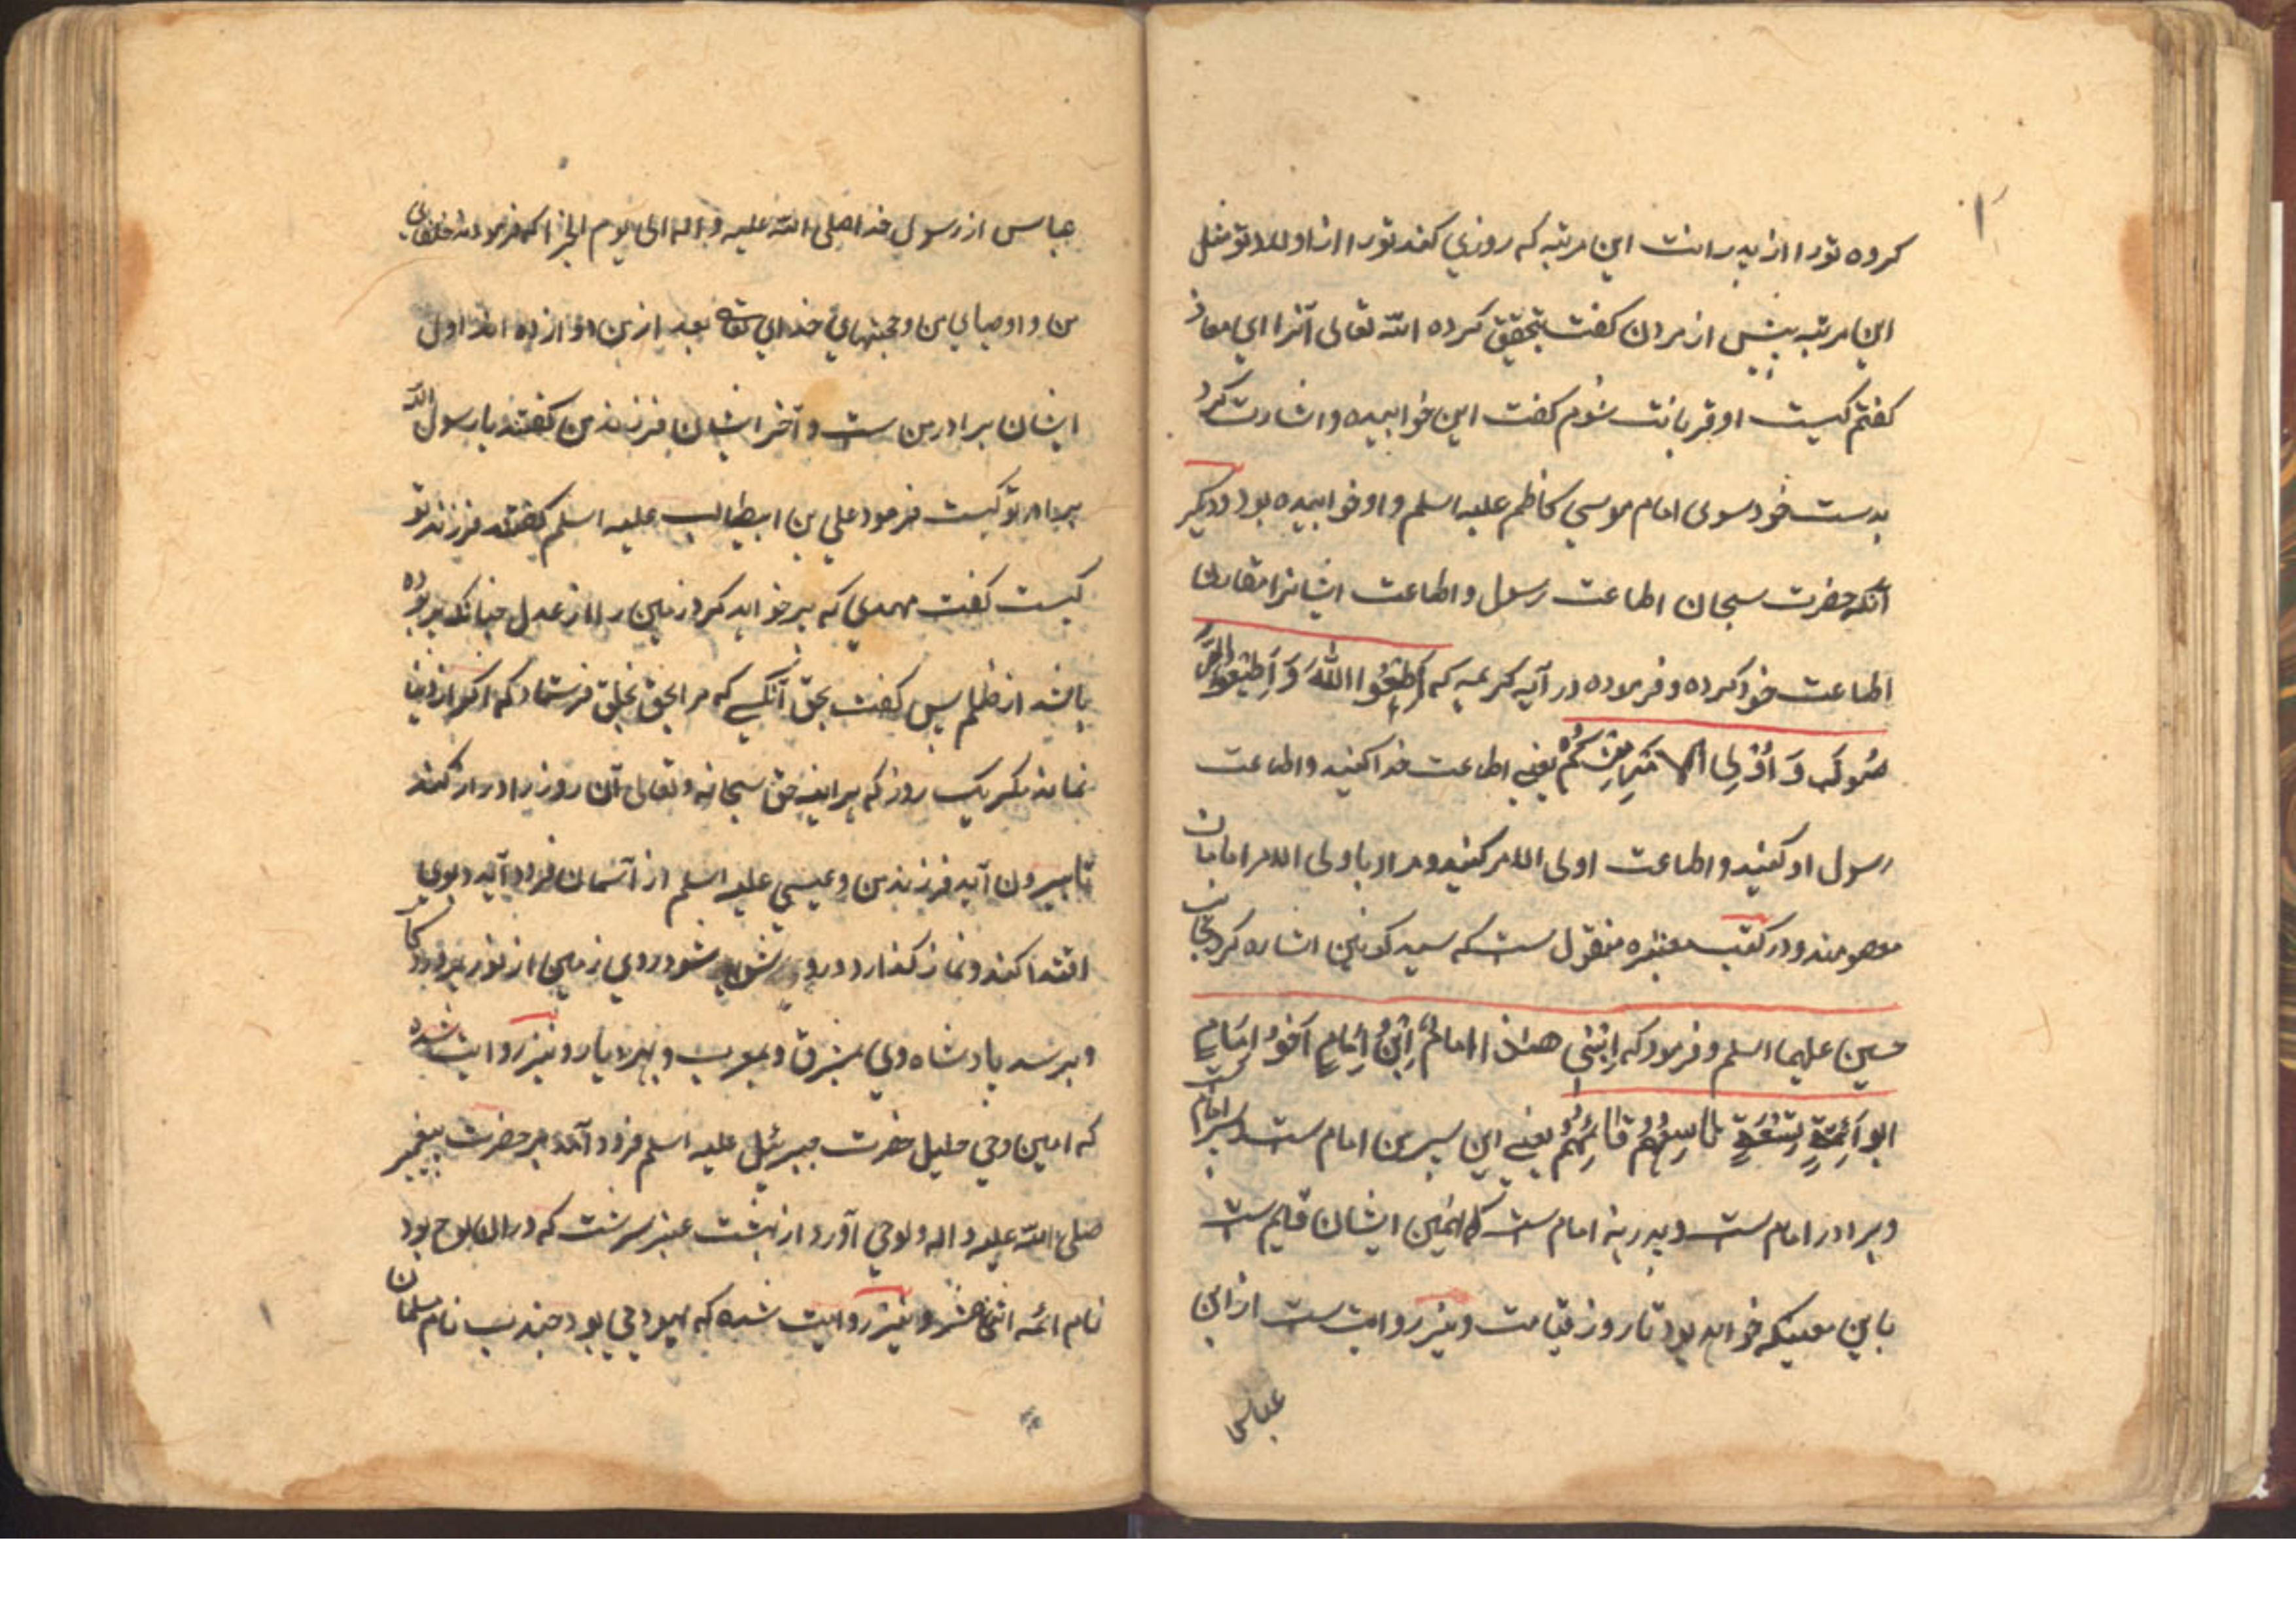 کروه تورا از پدرانت این مرتبه که روزی کند تورا از اولاد تو مثل
این مرتبه پیش از مردن کفت بتحقیق کرده الله تعالی آنرا ای معاذ
کفتم کیست او قربانت شوم کفت این خوابیده و اشارت کرد
بدست خود سوی امام موسی کاظم علیه اسلم و او خوابیده بود و دیکر
آنکه حضرت سبحان اطاعت رسول و اطاعت ایشانرا مقارن
اطاعت خود کرده و فرموده در آیه کریمه که اَطِیْعُوا اللهَ وَ اَطِیْعُوا الرَّ
سُولَ وَ اُوْلِی الامْرِ مِنْکُمْ یعنی اطاعت خدا کنید و اطاعت
رسول او کنید و اطاعت اولی الامر کنید و مراد باولی الامر امامان
معصومند و در کتب معتبره منقول ست که سید کونین اشاره کرد بجانب
حسین علیهما اسلم و فرمود که اِبْنی هذا امامٌ اِبْنُ اِمَامٍ اَخُوْ اِمَامٍ
ابو اَئِمَّةٍ تِسْعَةٍ تاسِعُهُمْ قائِمُهُمْ یعنی این پسر من امام ست و پسر امام ست
و برادر امام ست و پدر نه امام ست که نهمین ایشان قایم ست
باین معنیکه خواهد بود تا روز قیامت و نیز روایت ست از ابن
عباس
عباس از رسول خدا صلی الله علیه و اله الی یوم الجزا که فرمود خلفای
من و اوصیای من و حجتهای خدای تعالی بعد از من دوازده اند اول
ایشان برادر من ست و آخر ایشان فرزند من کفتند یا رسول الله
برادر تو کیست فرمود علی بن ابیطالب علیه اسلم کفتند فرزند تو
کیست کفت مهدی که پر خواهد کرد زمین را از عدل چنانکه پر بوده
باشد از ظلم پس کفت بحق آنکسے که مرا بحق بخلق فرستاد که اکر از دنیا
نماند مکر یک روز که هراینه حق سبحانه و تعالی آن روز را دراز کند
تا بیرون آید فرزند من و عیسی علیه اسلم از آسمان فرود آید و بوی
اقتدا کند و نماز کذارد و روی شود روی زمین از نور پروردکار
و برسد پادشاه وی بمشرق و بمغرب و نیز روایت شده
که امین وحی جلیل حضرت جبرئیل علیه اسلم فرود آمد بر حضرت پیغمبر
صلی الله علیه و اله و لوحی آورد از بهشت عنبر سرشت که در ان لوح بود
نام ائمه اثنا عشر و نیز روایت شده که یهودی بود جندب نام مسلمان